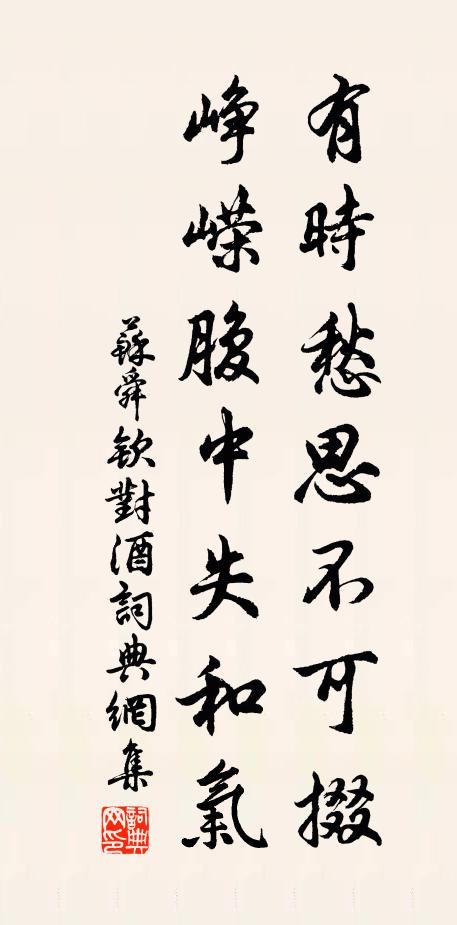 有時愁思不可掇
崢嶸腹中失和氣
蘇舜欽對酒詞典網集
詞典網印